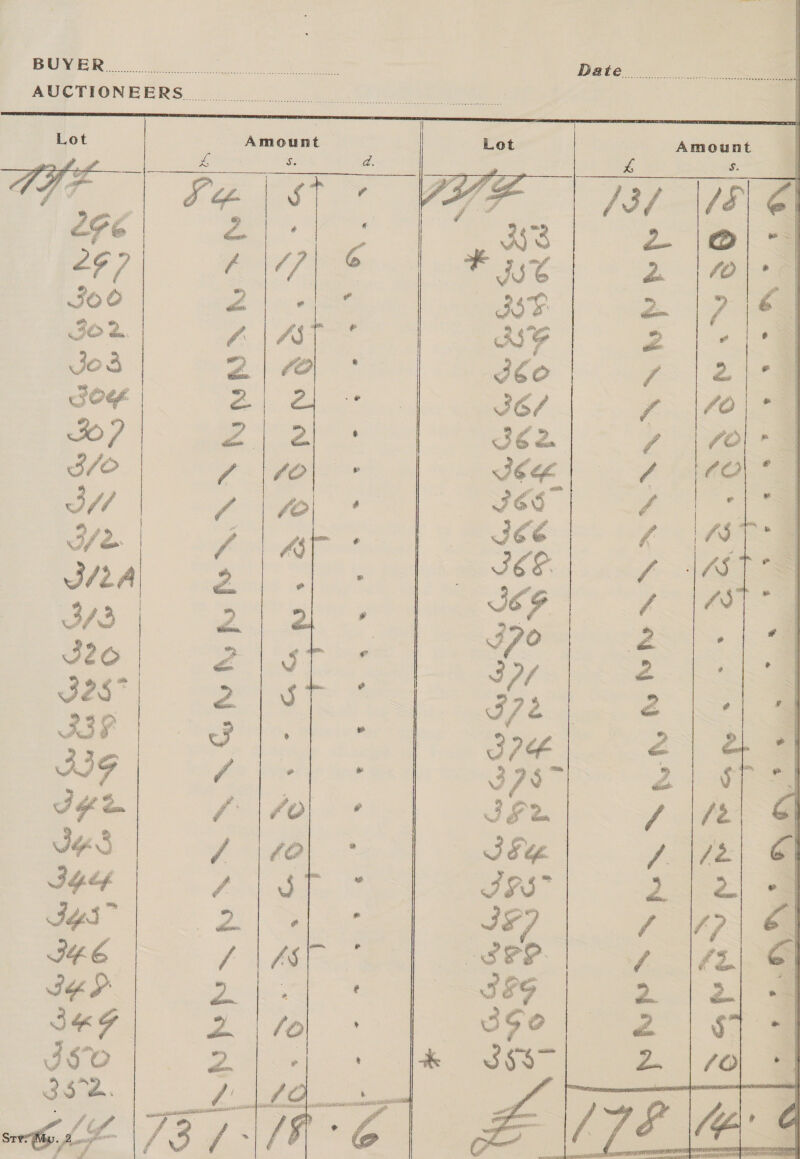 BUYER
AUCTIONEERS
Date
Lot Amount
£ s. d.
B/F 84 5 .
296 2 . .
297 1 17 6
300 2 . .
302 1 15 .
303 2 10 .
304 2 2 .
307 2 2 .
310 1 10 .
311 1 10 .
312 1 15 .
312A 2 . .
313 2 2 .
320 2 5 .
325 2 5 .
338 3 . .
339 1 . .
342 1 10 .
343 1 10 .
344 1 5 .
345 2 . .
346 1 15 .
348 2 . .
349 2 10 .
350 2 . .
352 1 10 .
C/F 131 . 18 . 6
STY. MU. 2
Lot Amount
£ s.
B/F 131 18 6
353 2 0 .
* 356 2 10 .
358 2 7 6
359 2 . .
360 1 2 .
361 1 10 .
362 1 10 .
364 1 10 .
365 1 . .
366 1 15 .
368 1 15 .
369 1 15 .
370 2 . .
371 2 . .
372 2 . .
374 2 2 .
375 2 5 .
382 1 12 6
384 1 12 6
385 2 2 .
387 1 17 6
388 1 12 6
389 2 2 .
390 2 5 .
* 355 2 10 .
£ 178 14 . 6